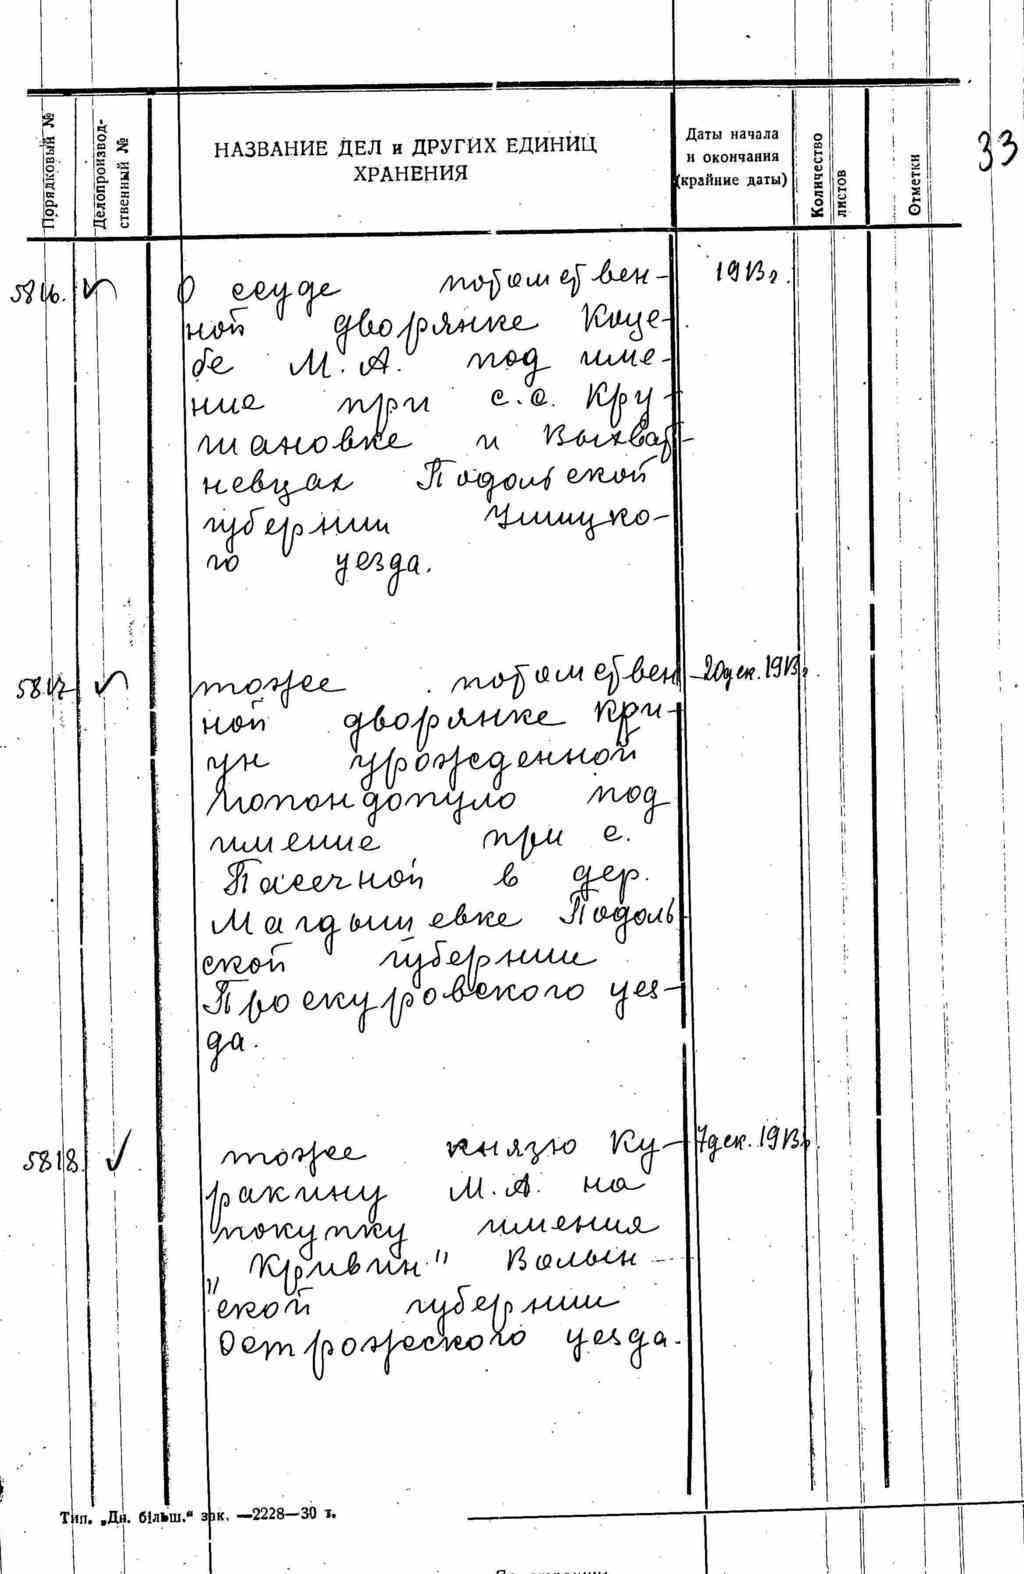 33
Порядковый №
Делопроизвод-
ственный №
НАЗВАНИЕ ДЕЛ и ДРУГИХ ЕДИНИЦ
ХРАНЕНИЯ
Даты начала
и окончания
(крайние даты)
Количество
листов
Отметки
5816. О ссуде потомствен- 1913г.
ной дворянке Коце-
бе М. А. под име-
ние при с.с. Кру-
шановке и
невцах Подольской
губернии Ушицко-
го уезда.
5817 тоже потомствен 20 дек. 1913г.
ной дворянке Кри-
ун урожденной
Попандопуло под
имение при с.
Пасечной в дер.
Магдышевке Подоль
ской губернии
Проскуровского уез-
да.
5818. тоже князю Ку- 7 дек. 1913г.
ракину М. А. на
покупку имения
„Кривин" Волын
ской губернии
Острожского уезда.
Тип. „Дн. більш." зак. —2228—30 т.